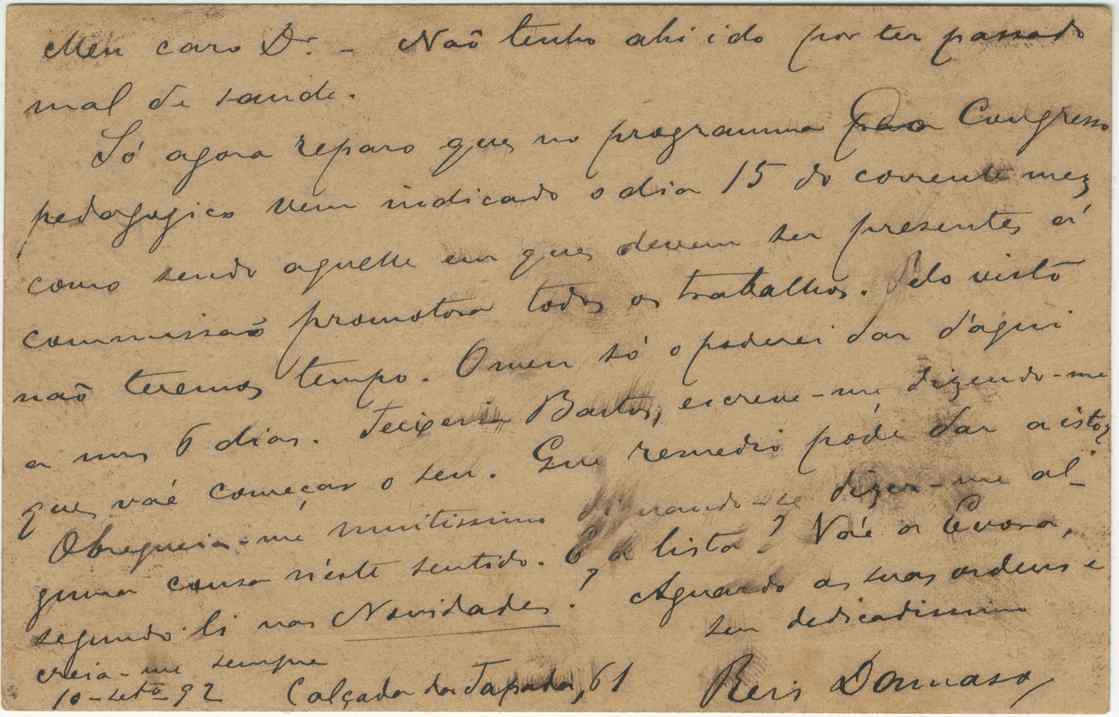 Meu caro Dr. - Não tenho ahi ido por ter passado
mal de saude.
Só agora reparo que no programma do Congresso
pedagogico vem indicado o dia 15 do corrente mez
como sendo aquelle em que devem ser presentes á
commissaõ promotora todos os trabalhos. Pelo visto
naõ teremos tempo. O meu só o poderei dar d'aqui
a uns 6 dias. Teixeira Bastos, escreve-me dizendo-me
que vaé começar o seu. Que remedio póde dar a isto?
Obrequeia-me muitissimo dignando-se dizer-me al-
guma cousa n'este sentido. E a lista? Vaé a Evora,
segundo li nas Novidades? Aguardo as suas ordens e
creia-me sempre seu dedicadissimo
10-setº-92 Calçada da Tapada, 61 Reis Damaso